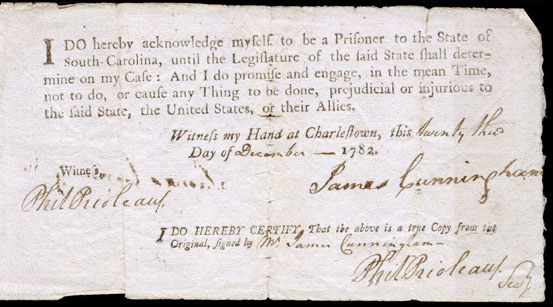 I DO hereby acknowledge myself to be a Prisoner to the State of
South-Carolina, until the Legiſlature of the ſaid State ſhall deter-
mine on my Caſe: And I do promiſe and engage, in the mean Time,
not to do, or cauſe any Thing to be done, prejudicial or injurious to
the ſaid State, the United States, or their Allies.
Witneſs my Hand at Charleſtown, this twenty
Day of December — 1782.
Witneſs,
James Cunningham
Phil Prioleau
I DO HEREBY CERTIFY, That the above is a true Copy from the
Original, ſigned by Mr. James Cunningham
Phil Prioleau
Secy